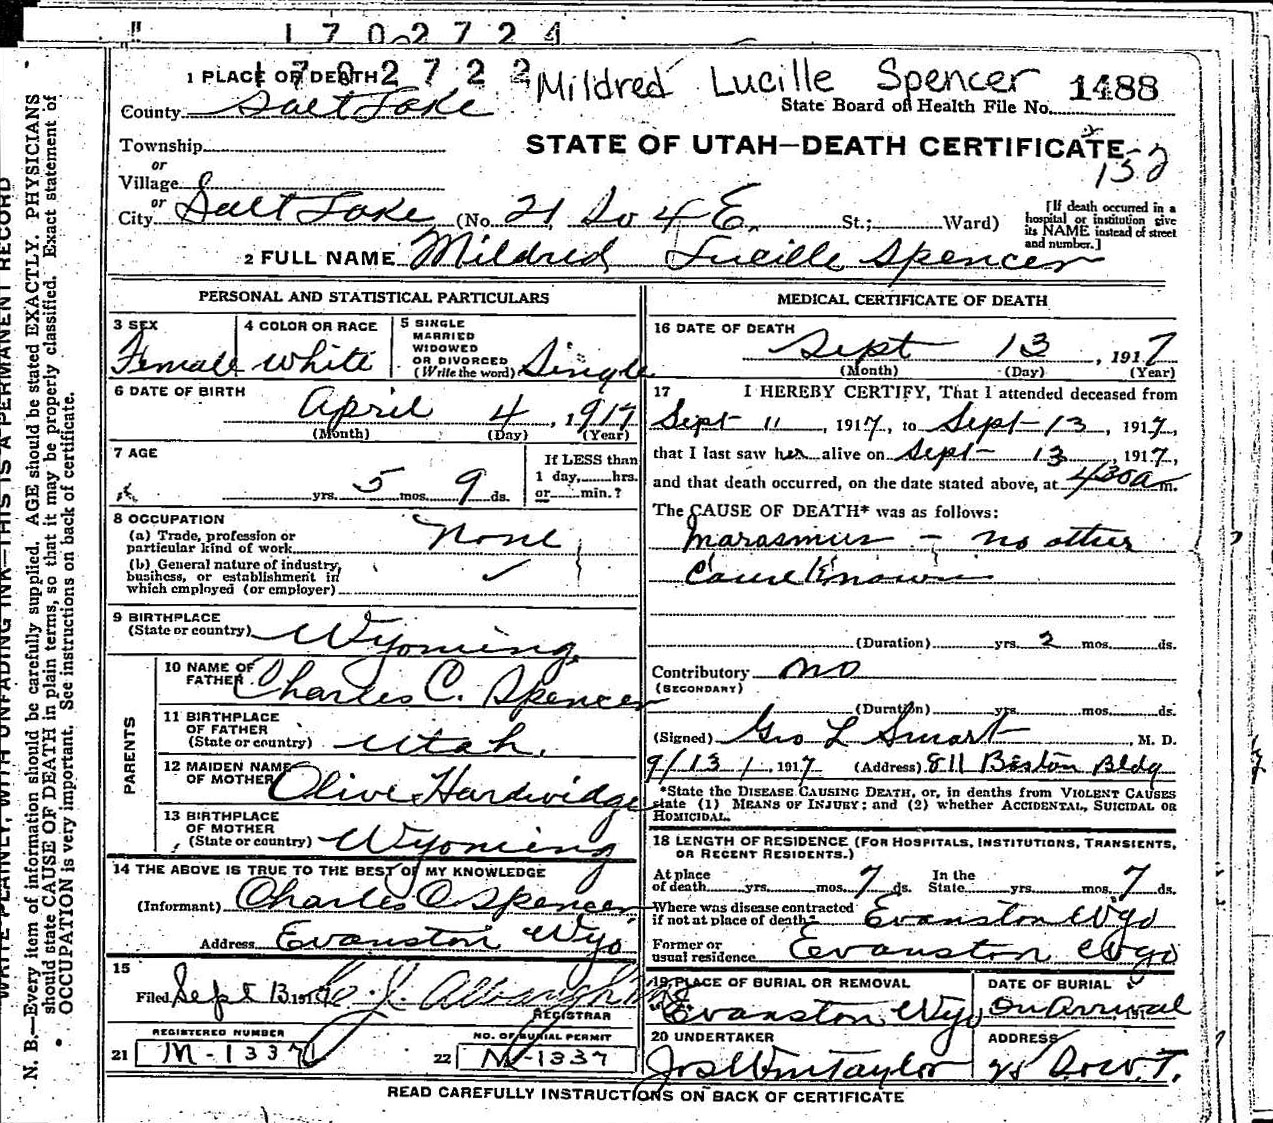 1702724
1702722
Mildred Lucille Spencer 1488
1 PLACE OF DEATH
State Board of Health File No.
County Salt Lake
STATE OF UTAH—DEATH CERTIFICATE
Township
or
Village
or
City Salt Lake (No. 21 So 4 E. St.; Ward)
[If death occurred in a
hospital or institution give
its NAME instead of street
and number.]
2 FULL NAME Mildred Lucille Spencer
PERSONAL AND STATISTICAL PARTICULARS
3 SEX
Female
4 COLOR OR RACE
White
5 SINGLE
MARRIED
WIDOWED
OR DIVORCED
(Write the word) Single
6 DATE OF BIRTH
April 4, 1917
(Month) (Day) (Year)
7 AGE
yrs. 5 mos. 9 ds.
If LESS than
1 day, hrs.
or min.?
8 OCCUPATION
(a) Trade, profession or
particular kind of work None
(b) General nature of industry,
business, or establishment in
which employed (or employer)
9 BIRTHPLACE
(State or country) Wyoming
PARENTS
10 NAME OF
FATHER Charles C. Spencer
11 BIRTHPLACE
OF FATHER
(State or country) Utah.
12 MAIDEN NAME
OF MOTHER Olive Hardwidge
13 BIRTHPLACE
OF MOTHER
(State or country) Wyoming
14 THE ABOVE IS TRUE TO THE BEST OF MY KNOWLEDGE
(Informant) Charles C. Spencer
Address Evanston Wyo
15
Filed Sept 13 191
REGISTRAR
REGISTERED NUMBER
21 M-1337
NO. OF BURIAL PERMIT
22 M-1337
MEDICAL CERTIFICATE OF DEATH
16 DATE OF DEATH
Sept 13, 1917
(Month) (Day) (Year)
17 I HEREBY CERTIFY, That I attended deceased from
Sept 11, 1917, to Sept 13, 1917,
that I last saw her alive on Sept 13, 1917,
and that death occurred, on the date stated above, at 430a m.
The CAUSE OF DEATH* was as follows:
Marasmus - no other
cause known
(Duration) yrs. 2 mos. ds.
Contributory no
(SECONDARY)
(Duration) yrs. mos. ds.
(Signed) Geo L Smart, M. D.
9/13/, 1917 (Address) 811 Boston Bldg
*State the DISEASE CAUSING DEATH, or, in deaths from VIOLENT CAUSES
state (1) MEANS OF INJURY; and (2) whether ACCIDENTAL, SUICIDAL OR
HOMICIDAL.
18 LENGTH OF RESIDENCE (FOR HOSPITALS, INSTITUTIONS, TRANSIENTS,
OR RECENT RESIDENTS.)
At place
of death yrs. mos. 7 ds.
In the
State yrs. mos. 7 ds.
Where was disease contracted
if not at place of death? Evanston Wyo
Former or
usual residence Evanston Wyo
19 PLACE OF BURIAL OR REMOVAL
Evanston Wyo
DATE OF BURIAL
On Arrival
20 UNDERTAKER
Jos Wm Taylor
ADDRESS
READ CAREFULLY INSTRUCTIONS ON BACK OF CERTIFICATE
WRITE PLAINLY, WITH UNFADING INK—THIS IS A PERMANENT RECORD
N. B.—Every item of information should be carefully supplied. AGE should be stated EXACTLY. PHYSICIANS
should state CAUSE OF DEATH in plain terms, so that it may be properly classified. Exact statement of
OCCUPATION is very important. See instructions on back of certificate.